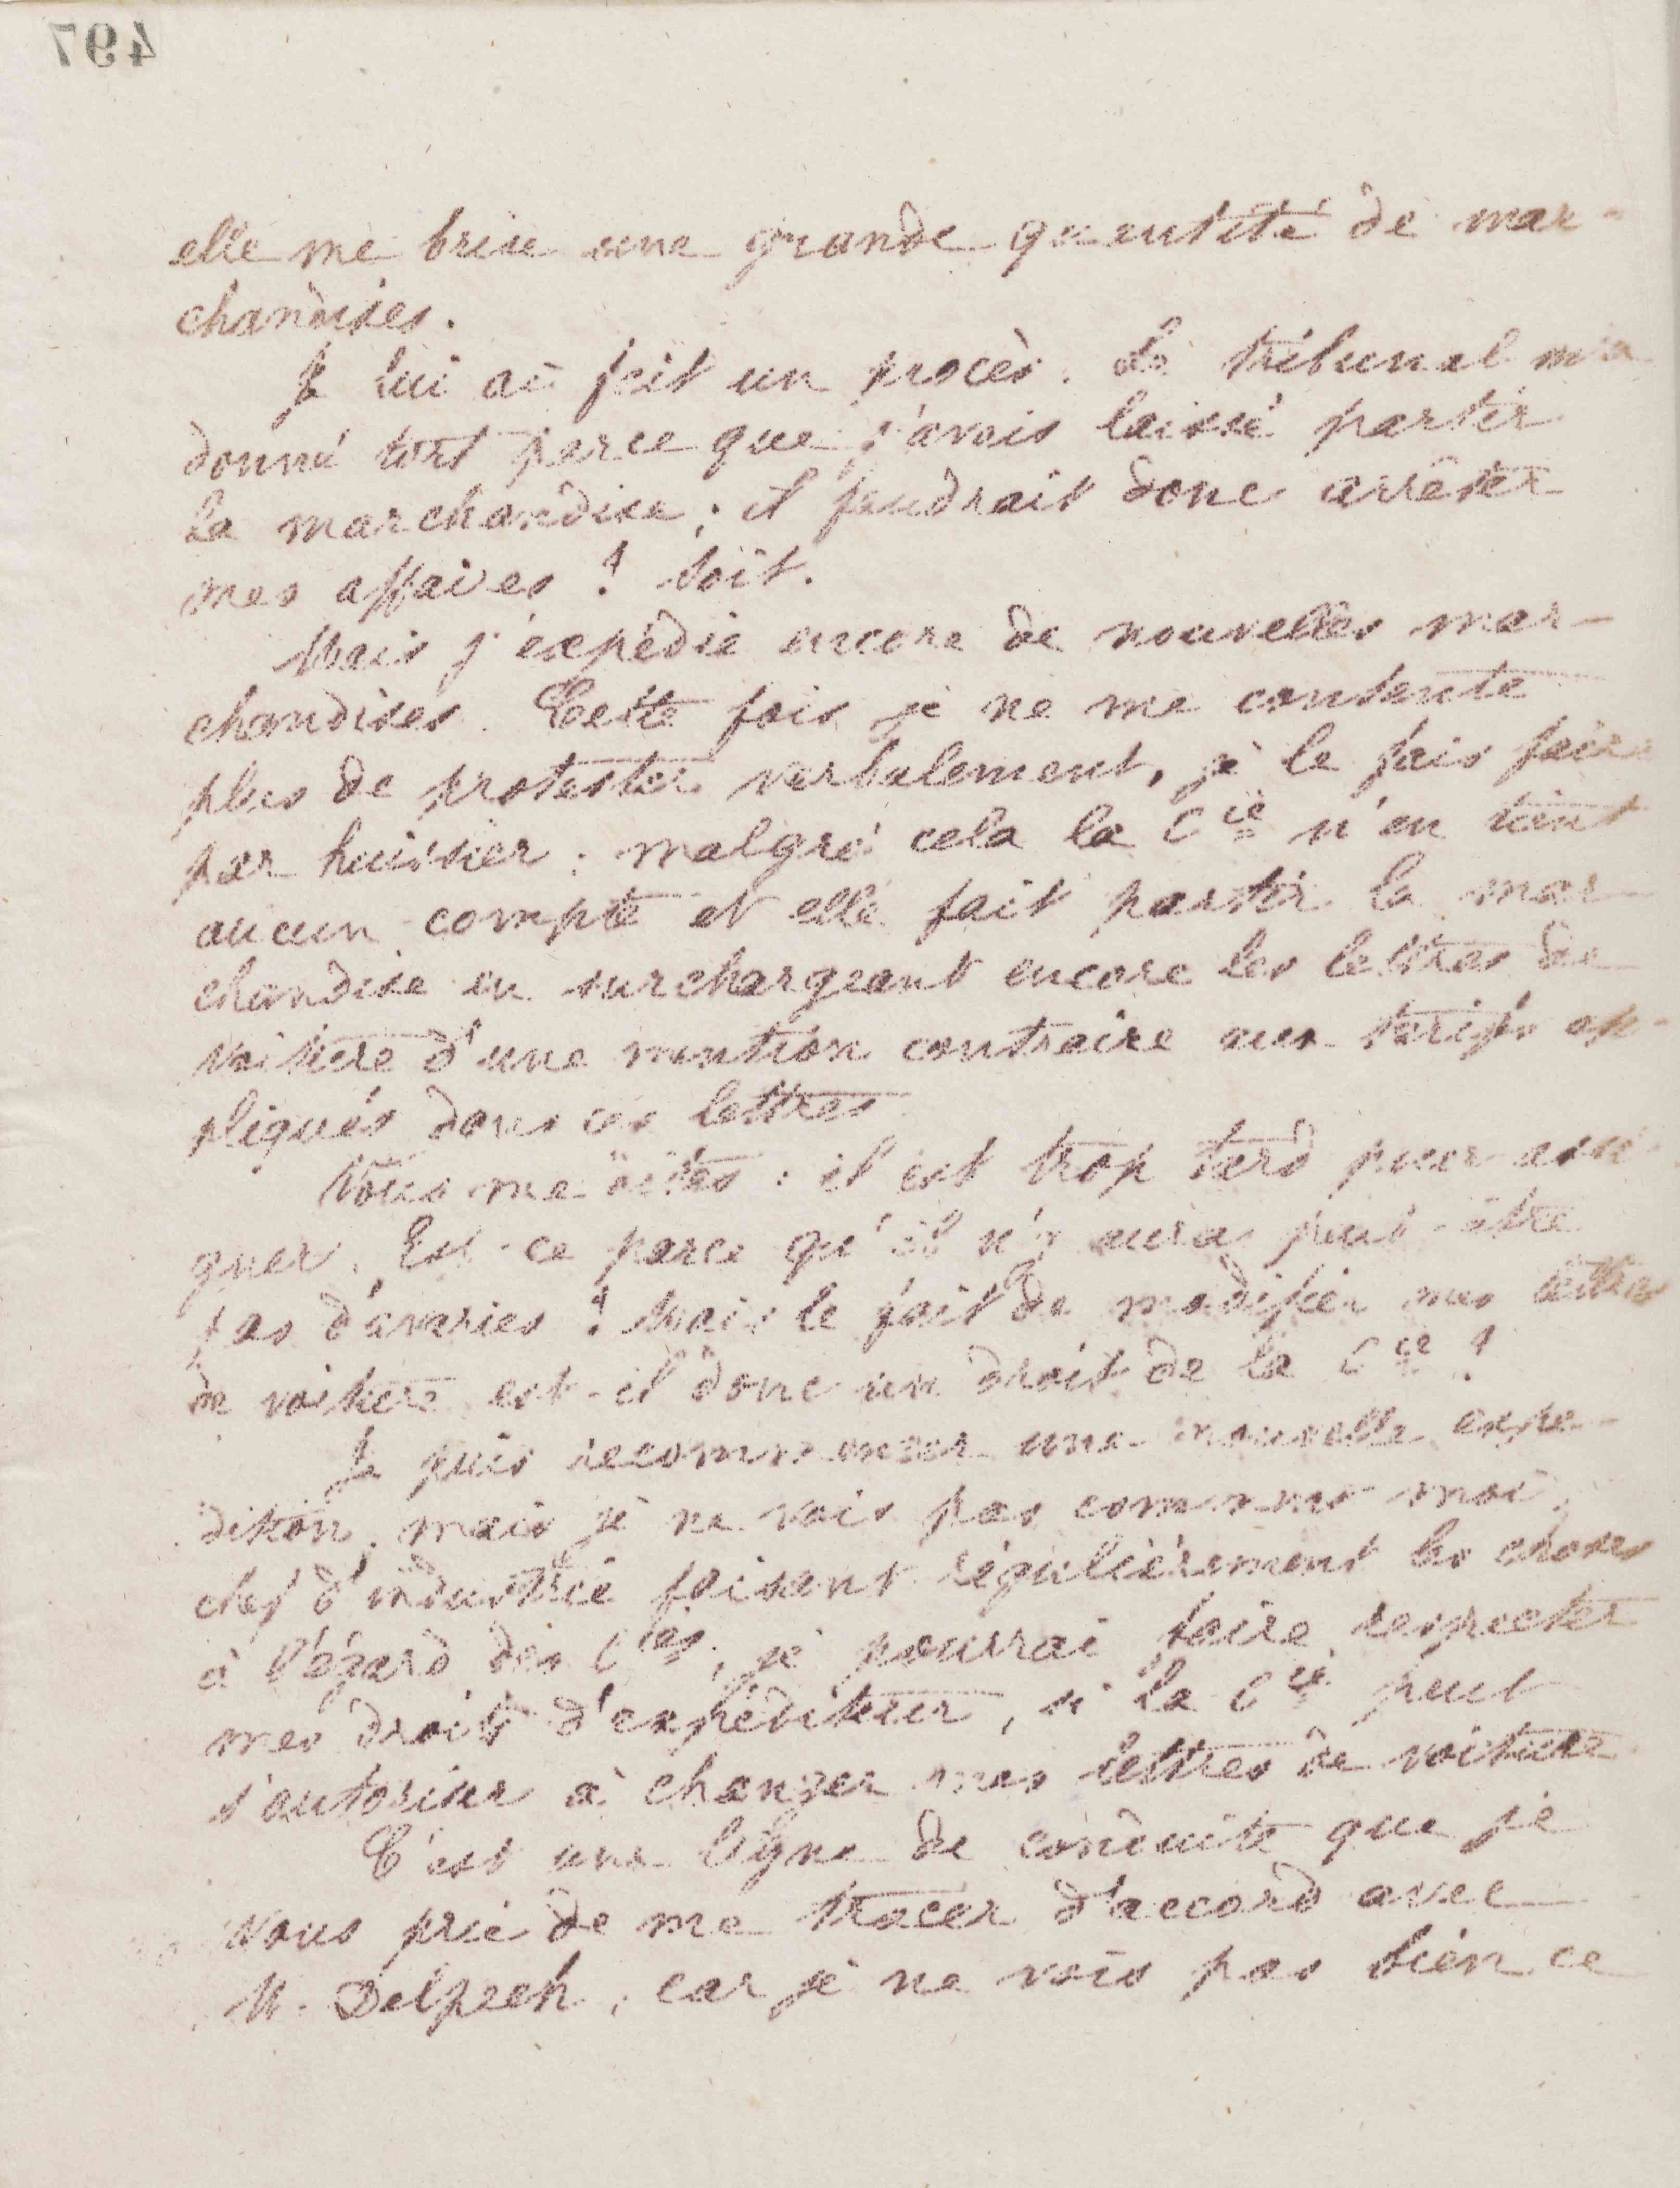 497
elle me brise une grande quantité de mar-
chandises.
Je lui ai fait un procès. Le tribunal m'a
donné tort parce que j'avais laissé partir
la marchandise ; il faudrait donc arrêter
mes affaires ? Soit.
Mais j'expédie encore de nouvelles mar-
chandises. Cette fois je ne me contente
plus de protester verbalement, je le fais faire
par huissier ; malgré cela la Cie n'en tient
aucun compte et elle fait partir la mar-
chandise en surchargeant encore les lettres de
voiture d'une mention contraire aux tarifs ap-
pliqués dans ces lettres
Vous me dites : il est trop tard pour assi-
gner. Est-ce parce qu'il n'y aura peut-être
pas d'avaries ? Mais le fait de modifier mes lettres
de voiture est-il donc un droit de la Cie ?
Je puis recommencer une nouvelle expé-
dition, mais je ne vois pas comment moi,
chef d'industrie faisant régulièrement les choses
à l'égard des Cies, je pourrai faire respecter
mes droits d'expéditeur, si la Cie peut
s'autoriser à changer mes lettres de voiture
C'est une ligne de conduite que je
vous prie de me tracer d'accord avec
M. Delpech, car je ne vois pas bien ce